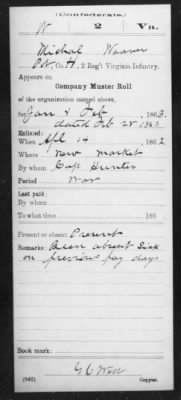 (Confederate.)
W 2 Va.
Michal Weaver
Pvt., Co. H, 2 Reg't Virginia Infantry.
Appears on
Company Muster Roll
of the organization named above,
for Jan & Feb, 1863.
dated Feb 28 1863
Enlisted:
When Apl 14, 1862
Where New Market
By whom Cap Hunter
Period War
Last paid:
By whom
To what time, 186
Present or absent Present
Remarks: Been absent Sick
on previous pay days
Book mark:
(642)
Copyist.